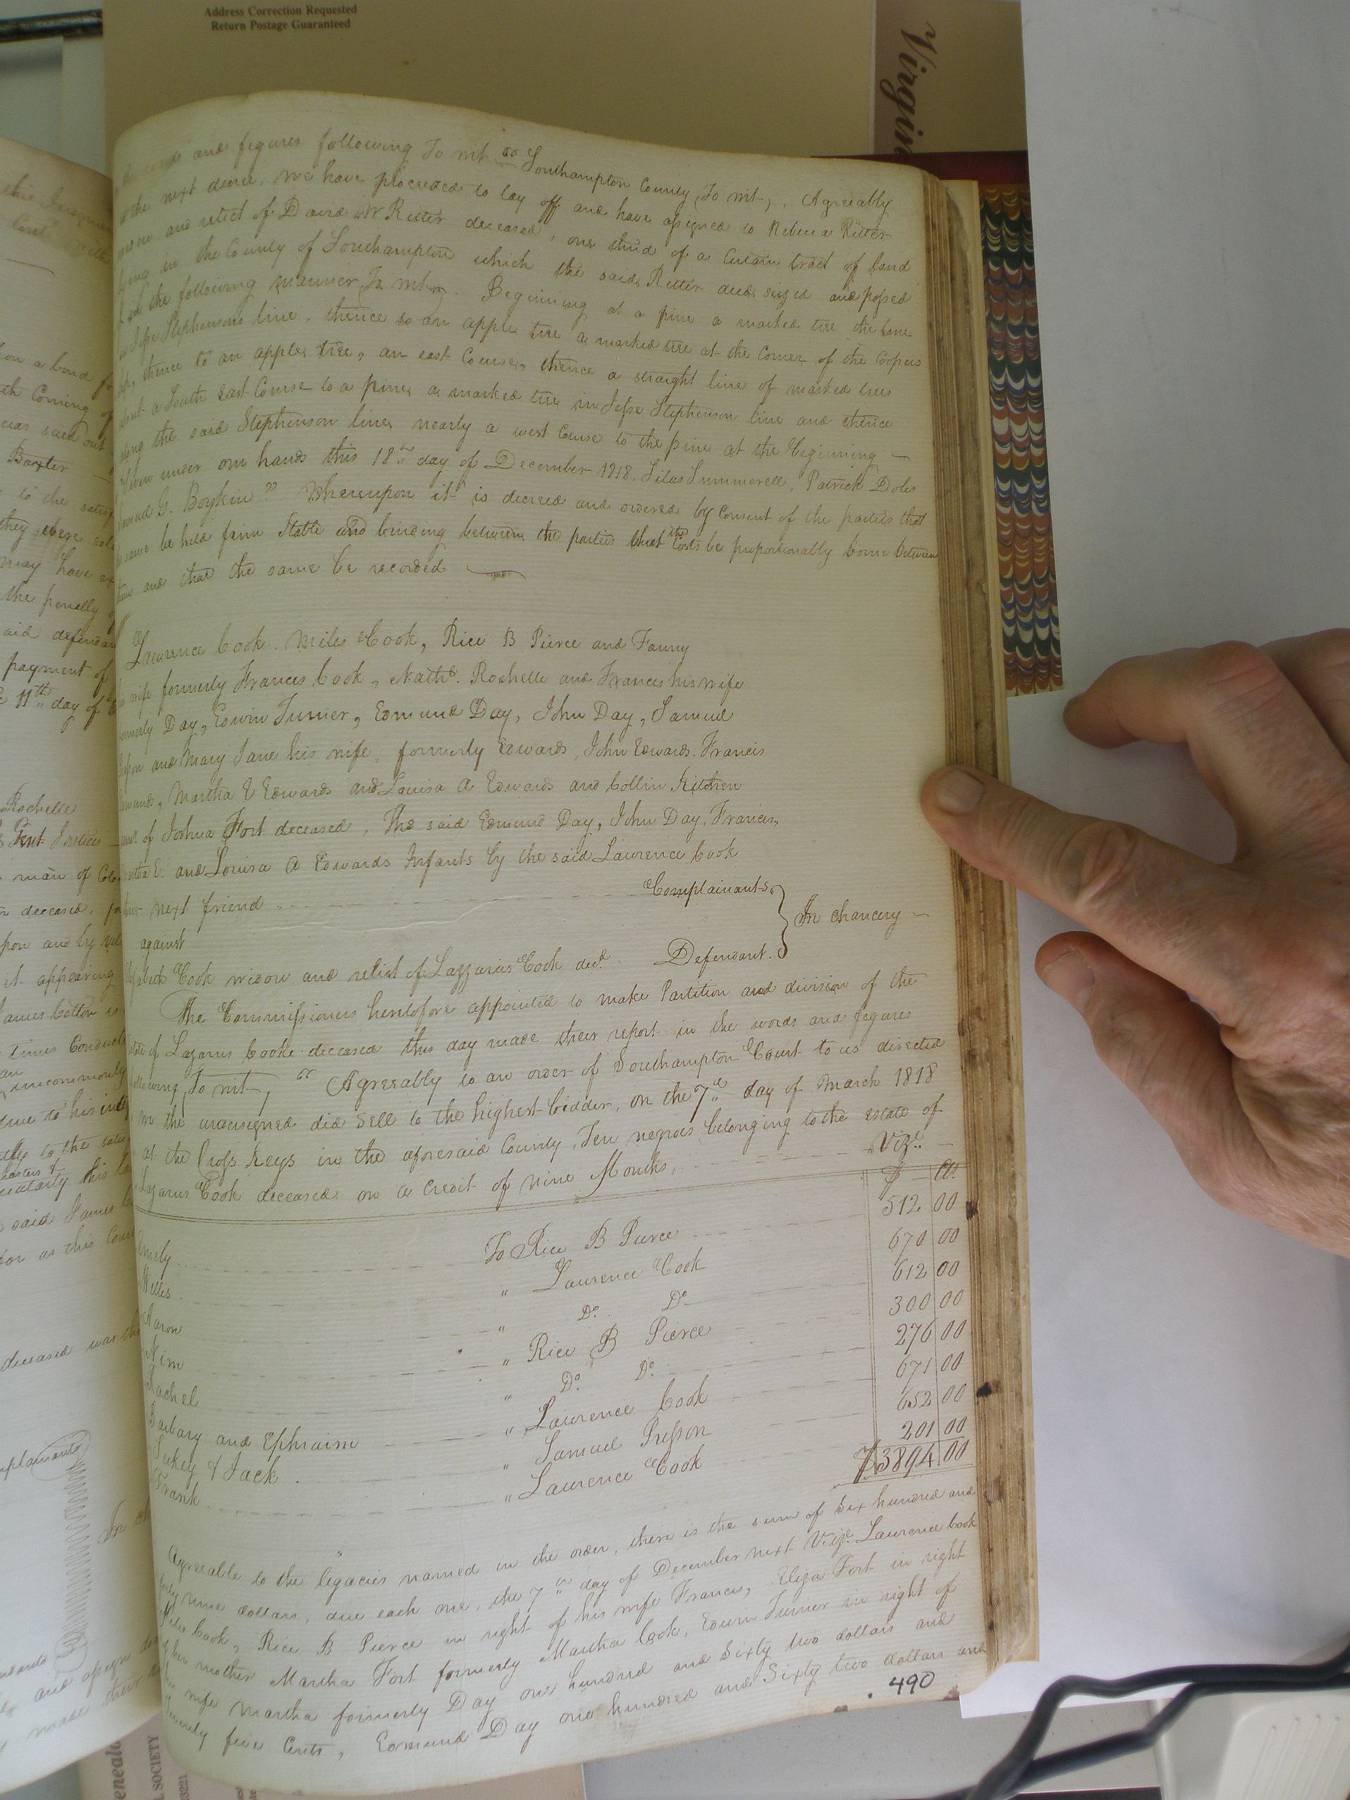 Address Correction Requested
Return Postage Guaranteed
Virgin
and figures following To wit "Southampton County (To wit), Agreeably
the next decree, we have proceeded to lay off and have assigned to Rebecca Ritter
and relict of David W Ritter deceased, one third of a Certain tract of land
in the County of Southampton which the said Ritter decd. seized and possed
of the following manner (To wit). Beginning at a pine a marked tree the line
Stephensons line. thence to an apple tree a marked tree at the Corner of the Coopers
thence to an apple tree, an east Course, thence a straight line of marked trees
about a South East Course to a pine, a marked tree in Jesse Stephenson line and thence
along the said Stephenson line, nearly a west Course to the pine at the beginning —
Given under our hands this 18th day of December 1818. Silas Summerell, Patrick Doles
G. Boykin" Whereupon it is decreed and ordered by Consent of the parties that
the same be held firm Stable and binding between the parties that the Costs be proportionably borne between
them and that the same be recorded
Laurence Cook. Miles Cook, Rice B Pierce and Fanny
his wife formerly Frances Cook, Nathl. Rochelle and Frances his wife
formerly Day, Edwin Turner, Edmund Day, John Day, Samuel
and Mary Jane his wife, formerly Edwards, John Edwards. Francis
Edwards, Martha E Edwards and Louisa A Edwards and Collin Kitchen
of Joshua Fort deceased, The said Edmund Day, John Day, Francis,
Martha E. and Louisa A Edwards Infants by the said Laurence Cook
next friend Complainants,
against In chancery —
Cook widow and relict of Lazzarus Cook decd. Defendant.
The Commissioners heretofore appointed to make Partition and division of the
Estate of Lazarus Cooke deceased this day made their report in the words and figures
following, To wit, "Agreeably to an order of Southampton Court to us directed
we the undersigned did sell to the highest bidder, on the 7th day of March 1818
at the Cross Keys in the aforesaid County, Ten negroes belonging to the estate of
Lazarus Cook deceased on a Credit of nine Months, Vizt. —
$ Ct.
To Rice B Pierce 512 00
Willis " Laurence Cook 670 00
Aaron " Do. Do. 612 00
Mim " Rice B Pierce 300 00
Rachel " Do. Do. 276 00
Barbary and Ephraim " Laurence Cook 671 00
Sukey & Jack " Samuel Presson 652 00
Frank " Laurence Cook 201 00
$3894 00
Agreeable to the legacies named in the order, there is the sum of Six hundred and
forty nine dollars, due each one, the 7th day of December next Vizt. Laurence Cook
Miles Cook, Rice B Pierce in right of his wife Frances, Eliza Fort in right
of her mother Martha Fort formerly Martha Cook, Edwin Turner in right of
his wife Martha formerly Day one hundred and Sixty two dollars and
Twenty five Cents, Edmund Day one hundred and Sixty two dollars and
490
on a bond
Coming
was said
Baxter
to the
they were
may have
the penalty
said defendant
payment of
11th day of
Rochelle
man of
deceased,
it appearing
James Cotton
Times
incommonly
due to his
to the
said James
for as this Court
deceased was
SOCIETY